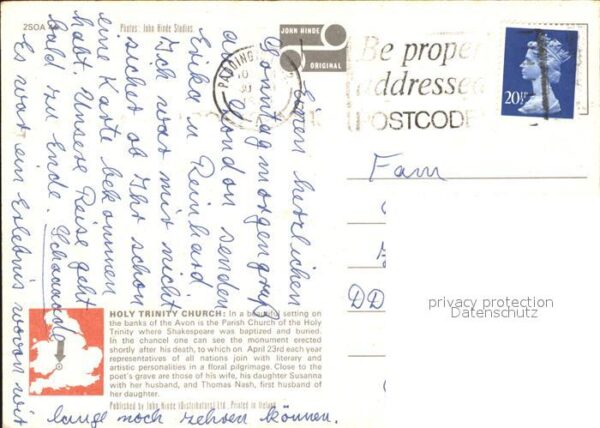 2SOA
Photos: John Hinde Studios.
JOHN HINDE
ORIGINAL
PADDINGTON
Be properly
addressed
POSTCODE
20½P
Einen herzlichen
Sonntagmorgengruß
aus London senden
Erika u Reinhard
Ich war mir nicht
sicher ob Ihr schon
eine Karte bekommen
habt Unsere Reise geht
bald zu Ende. Schaaade
Es war ein Erlebnis wovon wir
lange noch zehren können.
Fam
DD
privacy protection
Datenschutz
HOLY TRINITY CHURCH: In a beautiful setting on
the banks of the Avon is the Parish Church of the Holy
Trinity where Shakespeare was baptized and buried.
In the chancel one can see the monument erected
shortly after his death, to which on April 23rd each year
representatives of all nations join with literary and
artistic personalities in a floral pilgrimage. Close to the
poet's grave are those of his wife, his daughter Susanna
with her husband, and Thomas Nash, first husband of
her daughter.
Published by John Hinde (Distributors) Ltd. Printed in Ireland.